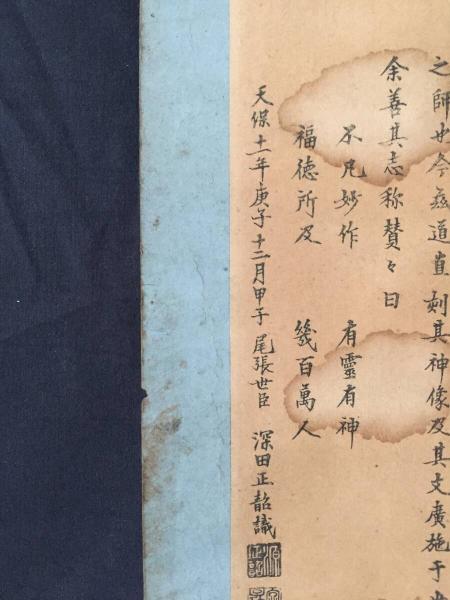 之師也今茲道直刻其神像及其文廣施于
余善其志称賛々曰
不凡妙作 有靈有神
福徳所及 幾百萬人
天保十一年庚子十二月甲子 尾張世臣 深田正韶識